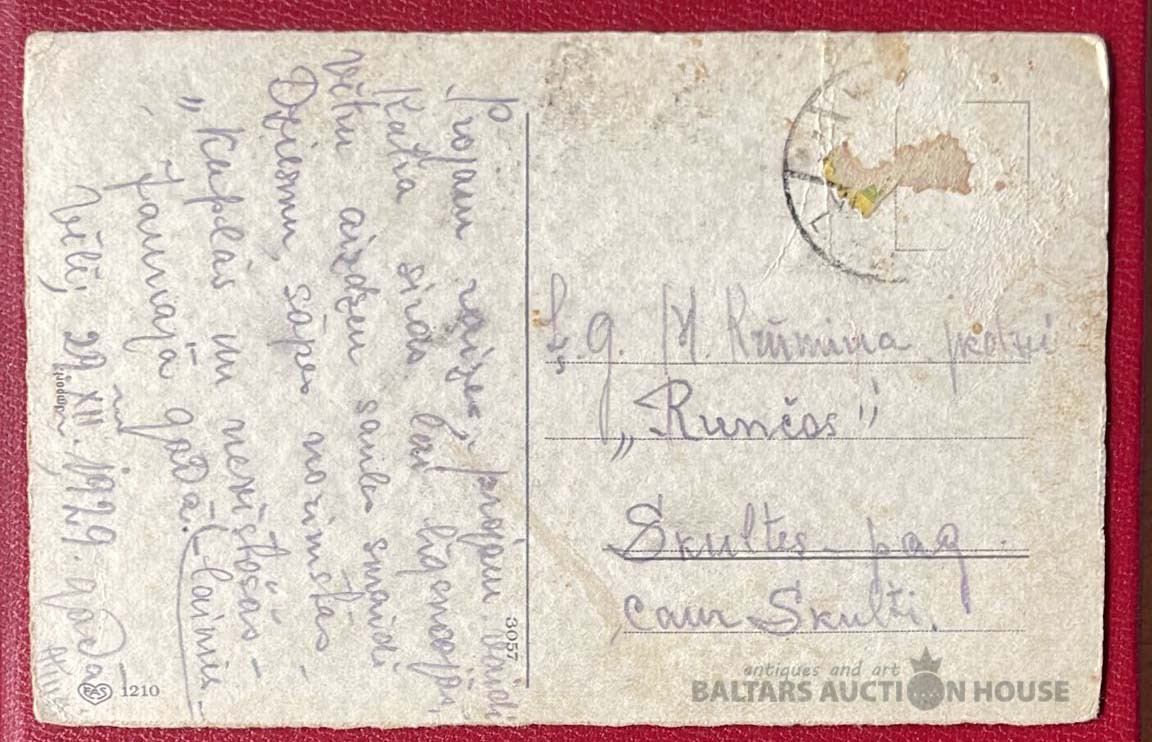 Projam raizes, projam
Katra sirds lai līgsmojas,
Vētru aizdzen saules smaidi
Dziesmu, sāpes norimstas -
"Kaplās un nerūstošās -
Jaunajā gadā! Laimes
Vēlē, 29. XII. 1929. gadā.
3057
EAS 1210
L. g. M. Krūmiņa
"Runčos"
Skultes pag.
caur Skulti.
antiques and art
BALTARS AUCTION HOUSE